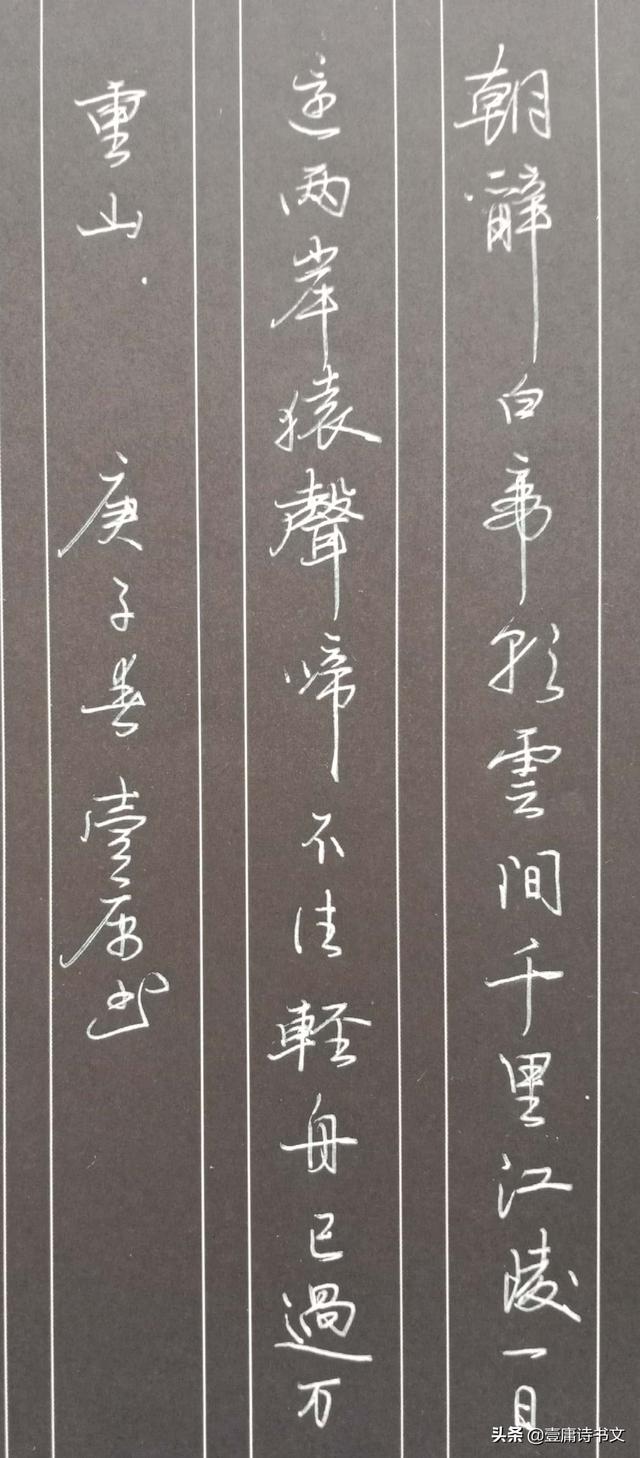 朝辭白帝彩雲间千里江陵一日
还两岸猿聲啼不住輕舟已過万
重山.
庚子春壹庸书
头条 @壹庸诗书文